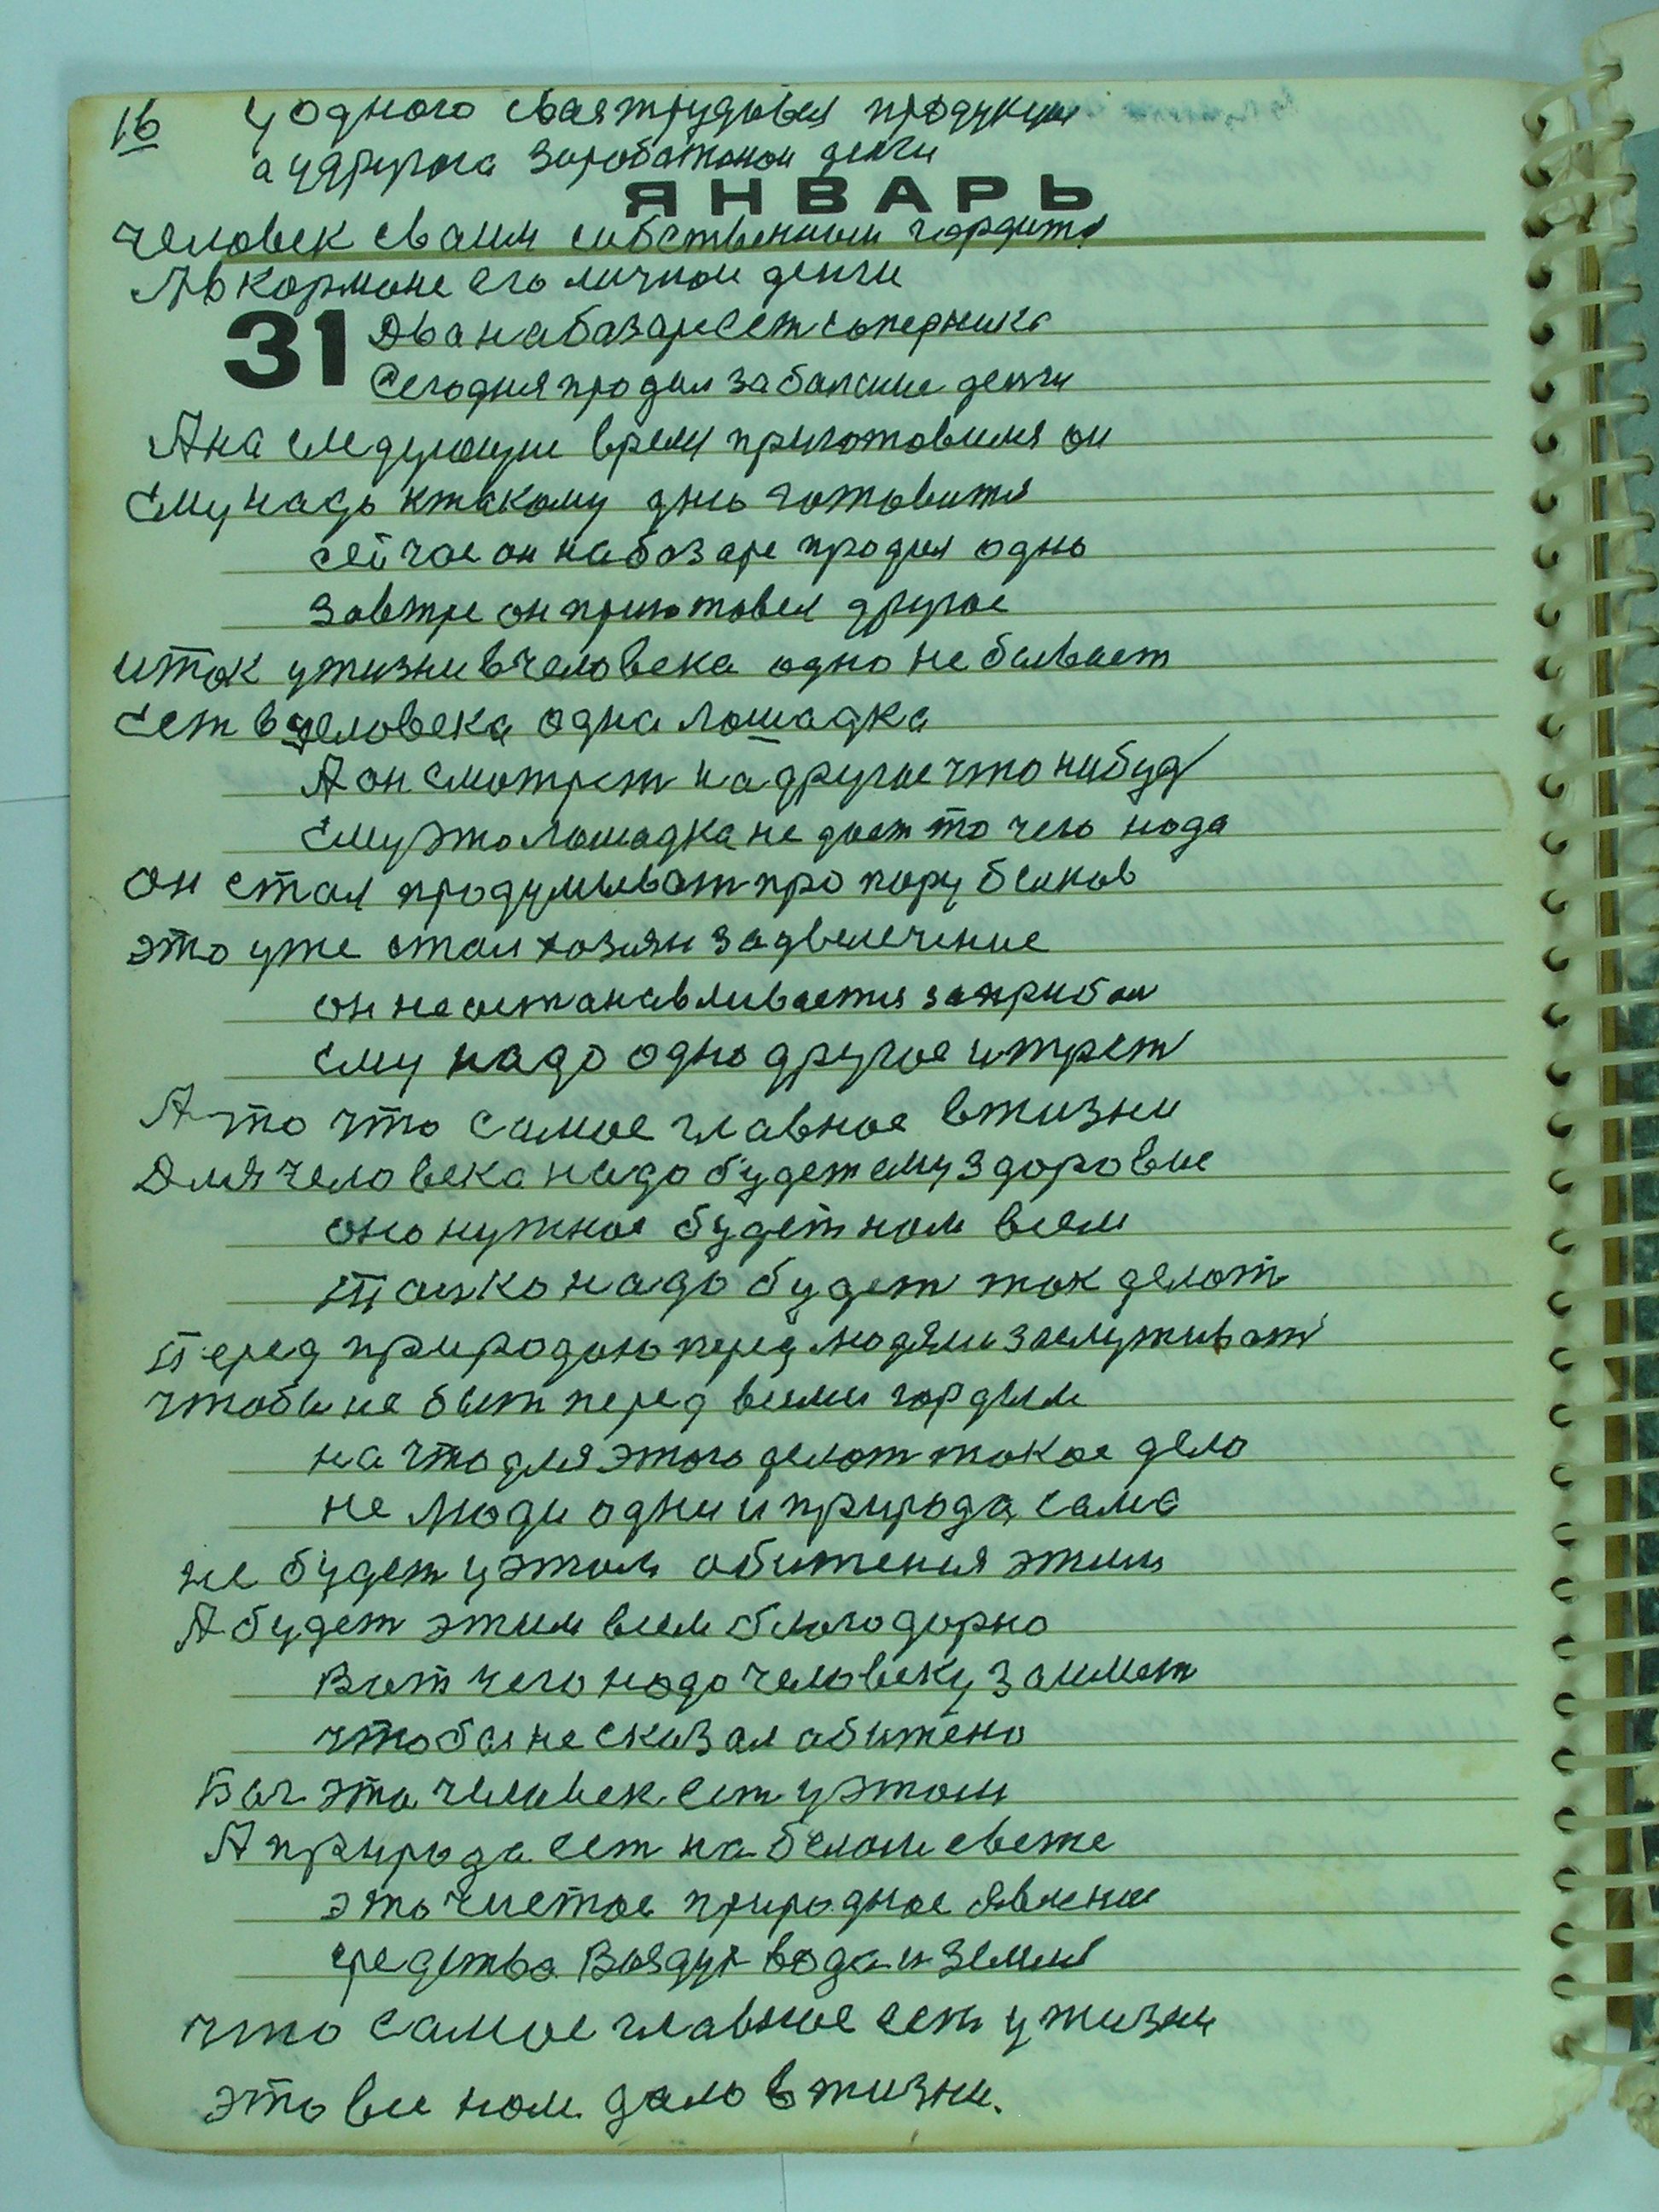 16 у одного свая трудовая продукция
а у другога заработаной денги
ЯНВАРЬ
человек сваим собственым гордится
А в кормоне его личнои денги
31 Два на базаре ест соперника
Сегодня продал за балшие денги
А на следующие время приготовился он
Ему надо ктакому дню готовится
сейчас он на базаре продал одно
Завтре он приготовел другое
и так у жизни в человека одно не бывает
Ест в человека одна лошадка
А он смотрет на другое что нибуд
Ему это лошадка не дает то чего нада
он стал продумыват про пару быков
это уже стал хозяин за двелечение
он не астанавливается за прибал
ему надо одно другое и трет
А то что самое главное в жизни
Для человека надо будет ему здоровие
оно нужное будет нам всем
Толко надо будет так делат
Перед природаю перед людями заслуживат
чтобы не быт перед всеми гордым
на что для этого делат такое дело
не люди одни и природа сама
не будет у этом обижения этим
А будет этим всем благодарно
Вот чего надо человеку заимет
что бы не сказал абижено
Бог это человек ест у этом
А природа ест на белом свете
это чистое природное явление
средства Воздух вода и земля
что самое главное ест у жизни
это все нам дало в жизни.